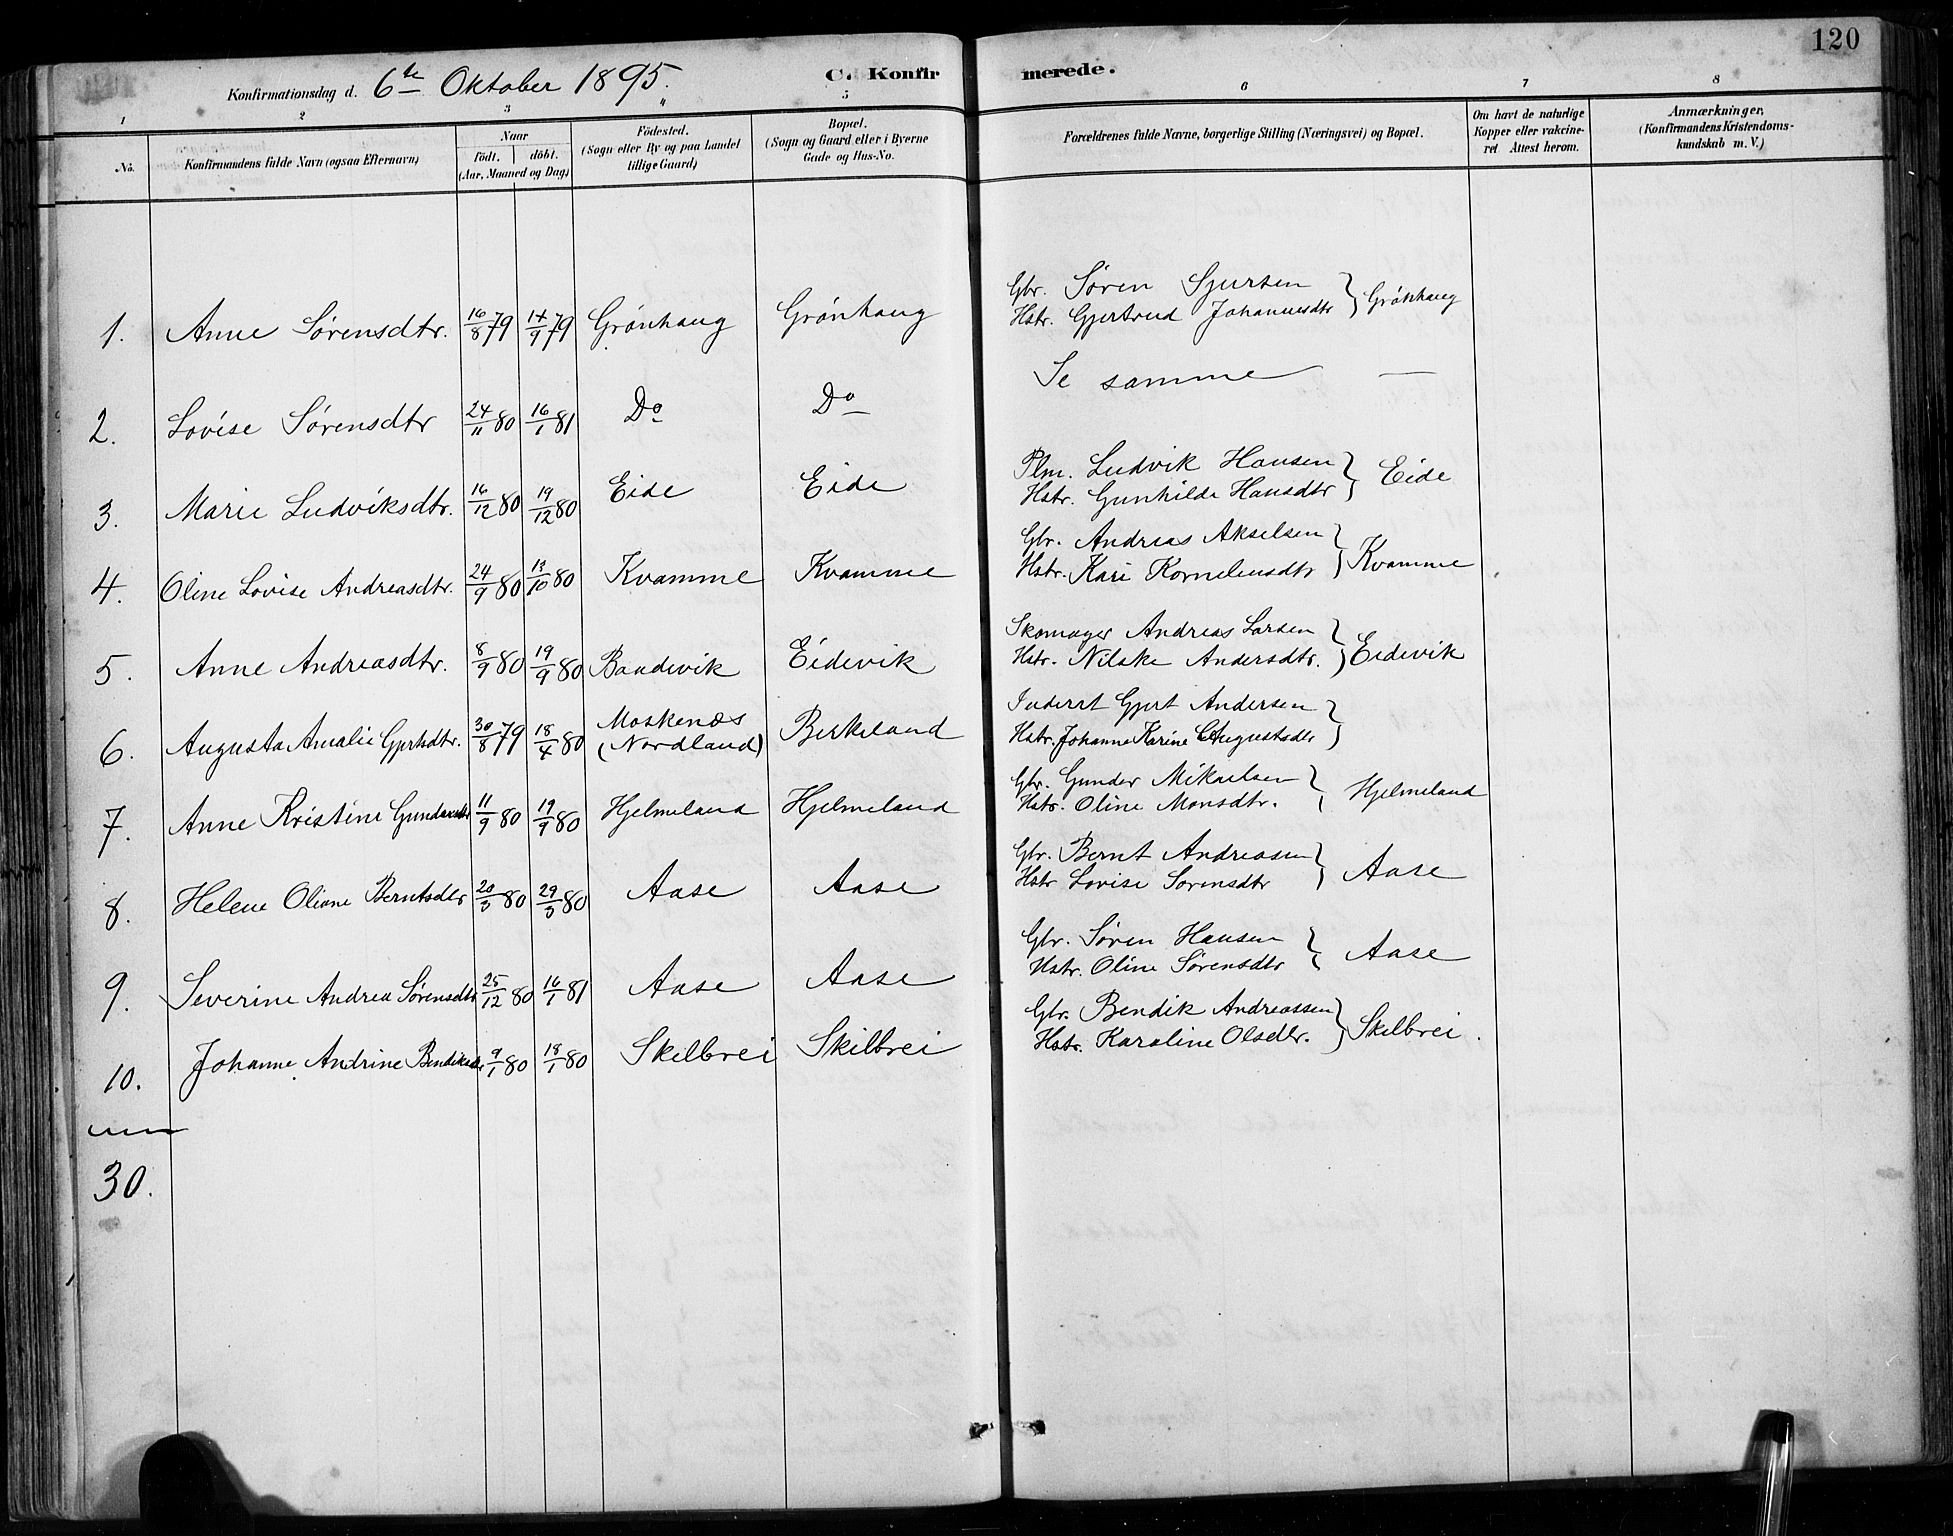 120
Konfirmationsdag d. 6te Oktober 1895.
C. Konfirmerede.
1 2 3 4 5 6 7 8
No. Konfirmandens fulde Navn (ogsaa Efternavn) Naar født. døbt. (Aar, Maaned og Dag) Födested. (Sogn eller By og paa Landet tillige Gaard) Bopæl. (Sogn og Gaard eller i Byerne Gade og Hus-No. Forældrenes fulde Navne, borgerlige Stilling (Næringsvei) og Bopæl. Om havt de naturlige Kopper eller vakcineret Attest herom. Anmærkninger, (Konfirmandens Kristendomskundskab m. V.)
1. Anne Sørensdtr. 16/8 79 14/9 79 Grönhaug Grönhaug Gbr. Søren Sjursen
Hstr. Gjertrud Johannesdtr } Grönhaug
2. Lovise Sørensdtr 24/11 80 16/1 81 Do Do Se samme —
3. Marie Ludviksdtr. 16/12 80 19/12 80 Eide Eide Plm. Ludvik Hansen
Hstr. Gunhilde Hansdtr } Eide
4. Oline Lovise Andreasdtr. 24/9 80 13/10 80 Kvamme Kvamme Gbr. Andreas Akselsen
Hstr. Kari Korneliusdtr } Kvamme
5. Anne Andreasdtr. 8/9 80 19/9 80 Eidevik Skomager Andreas Larsen
Hstr. Nilske Andersdtr. } Eidevik
6. Augusta Amalie Gjertsdtr. 30/8 79 18/4 80 Moskenæs (Nordland) Birkeland Inderst Gjert Andersen
Hstr. Johanne Karine Augustsdtr }
7. Anne Kristine Gundersdtr 11/9 80 19/9 80 Hjelmeland Hjelmeland Gbr. Gunder Mikaelsen
Hstr. Oline Monsdtr. } Hjelmeland
8. Helene Oliane Berntsdtr 20/3 80 29/3 80 Aase Aase Gbr. Bernt Andreasen
Hstr Lovise Sorensdtr } Aase
9. Severine Andrea Sørensdtr 25/12 80 16/1 81 Aase Aase Gbr. Søren Hansen
Hstr. Oline Sørensdtr } Aase
10. Johanne Andrine Bendiksdtr 9/1 80 18/1 80 Skilbrei Skilbrei Gbr. Bendik Andreassen
Hstr. Karoline Olsdtr. } Skilbrei.
30.